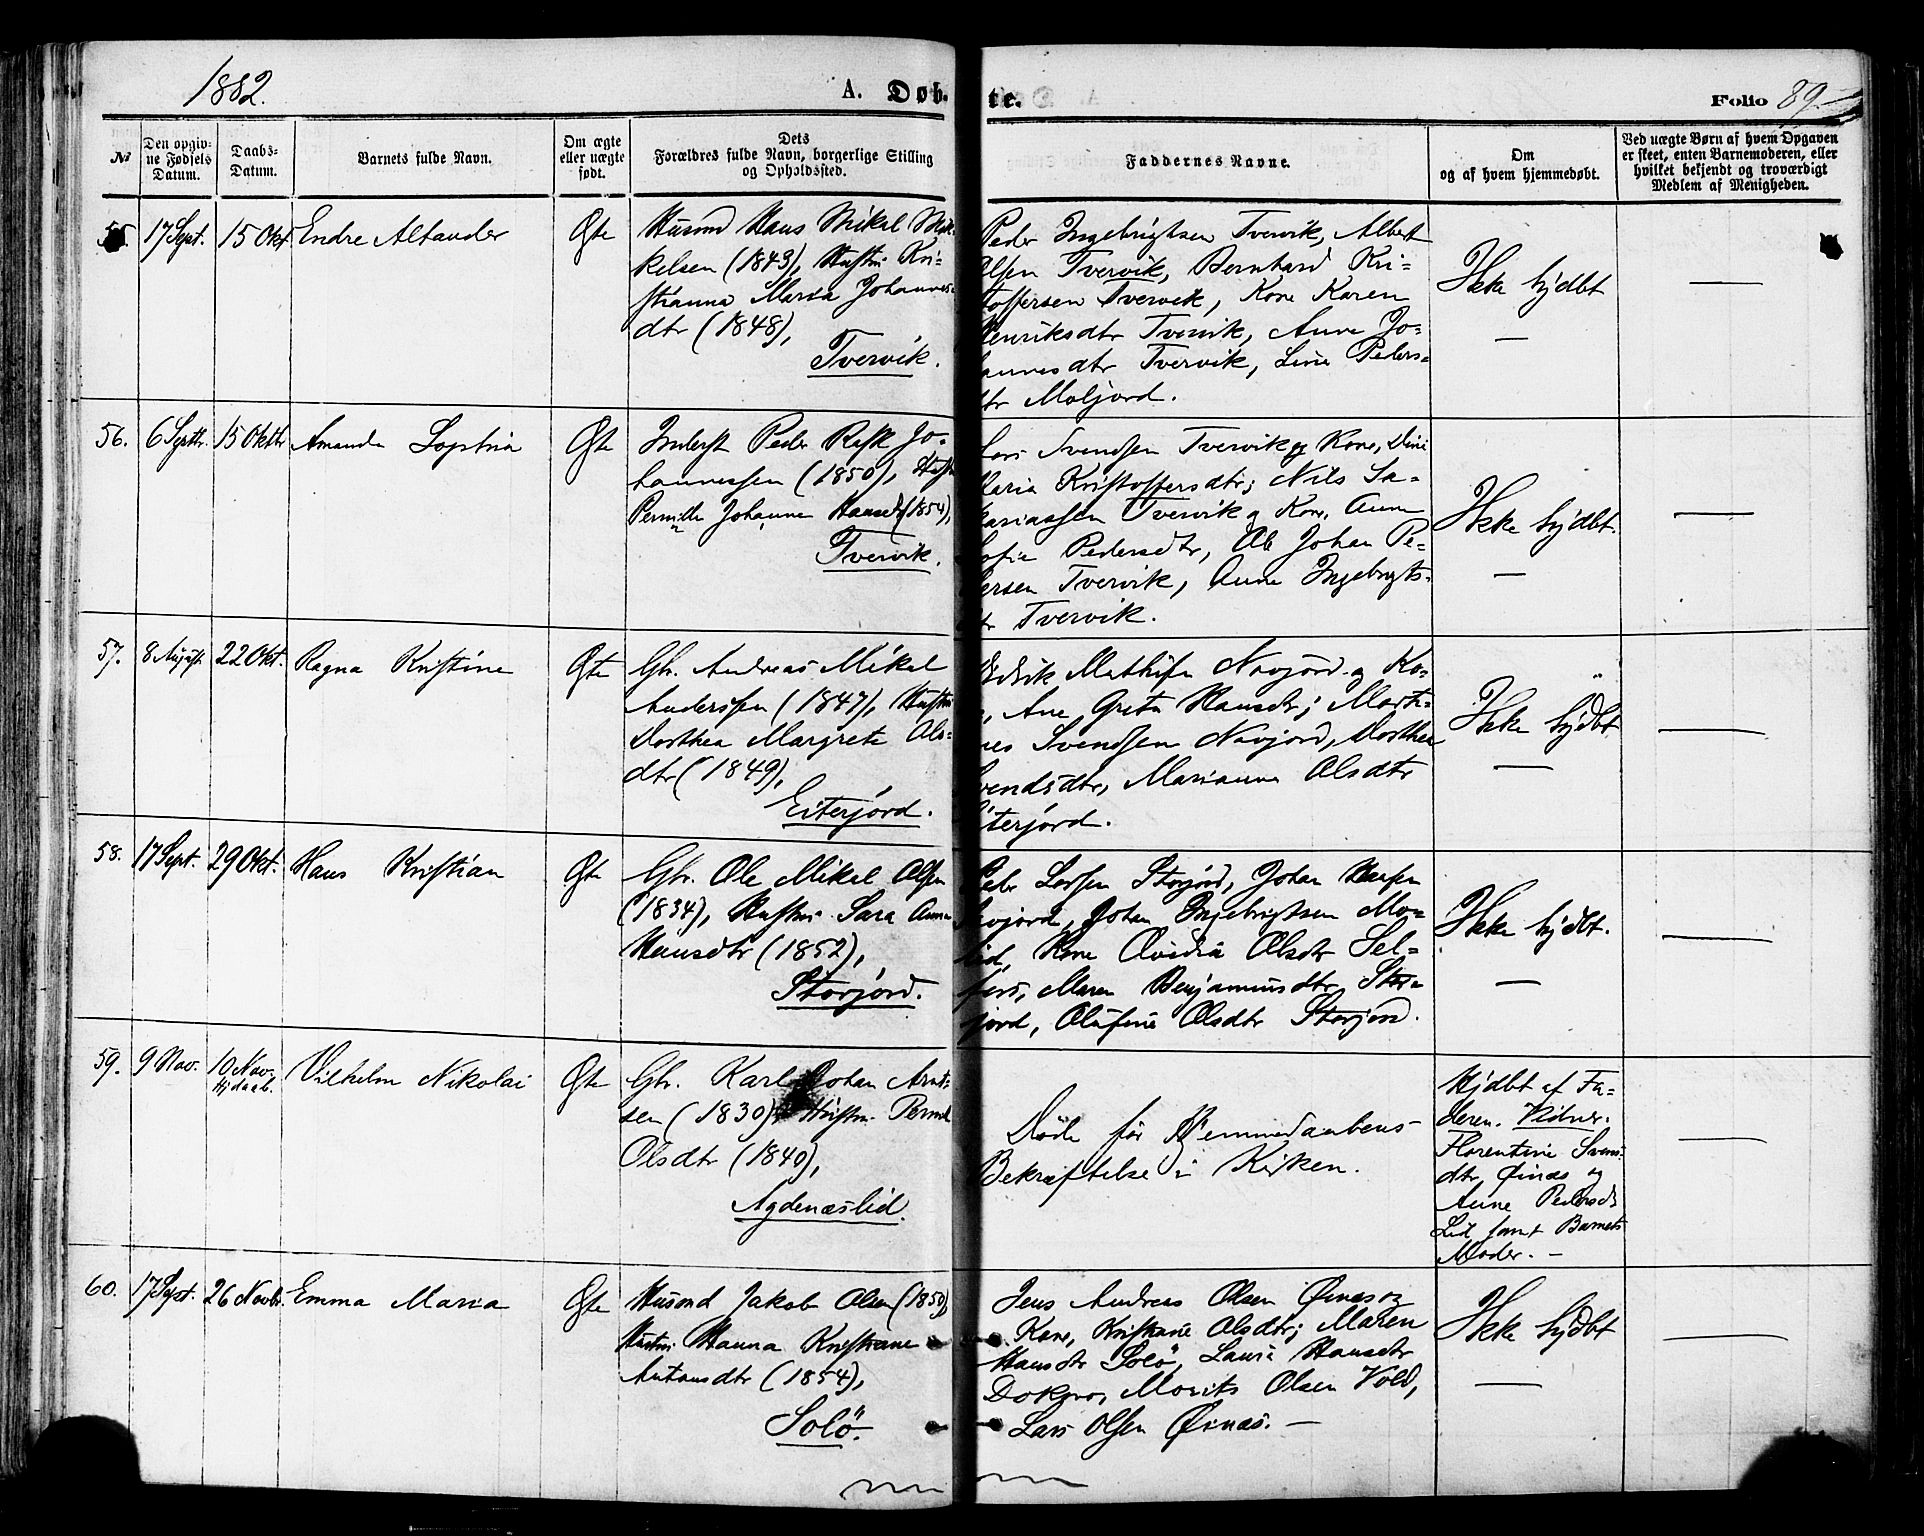 1882.
A. Døb-
te.
Folio 89.
No
Den opgiv-
ne Fødsels
Datum.
Daabs-
Datum.
Barnets fulde Navn.
Om ægte
eller uægte
født.
Dets
Forældres fulde Navn, borgerlige Stilling
og Opholdssted.
Faddernes Navne.
Om
og af hvem hjemmedøbt.
Ved uægte Børn af hvem Opgaven
er skeet, enten Barnemoderen, eller
hvilket bekjendt og troværdigt
Medlem af Menigheden.
55. 17 Sept. 15 Okt. Endre Altander
Ægte
Husmd Hans Mikal Mik-
kelsen (1843), Hustru Kri-
stianna Maria Johannes-
dtr (1848),
Tvervik.
Peder Ingebrigtsen Tvervik, Albert
Olsen Tvervik, Bernhard Kri-
stoffersen Tvervik, Kone Karen
Henriksdtr Tvervik, Anne Jo-
hannesdtr Tvervik, Line Peders-
dtr Moljord.
Ikke hjdbt
—
56. 6 Septbr. 15 Oktbr Amanda
Ægte
Inderst Peder Rask Jo-
hannessen (1850), Hustru
Pernille Johanna Hansdtr (1854),
Tvervik.
Lars Svendsen Tvervik og Kone, Dina
Maria Kristoffersdtr; Nils Sa-
kariassen Tvervik og Kone, Anne
Sofia Pedersdtr, Ole Johan Pe-
dersen Tvervik, Anne Ingebrigts-
dtr Tvervik.
Ikke hjdbt.
—
57. 8 August. 22 Okt. Ragna Kristine
Ægte
Gbr. Andreas Mikal
Anderssen (1847), Hustru
Dorthea Margrete Ols-
dtr (1849),
Eiterjord.
Mathisen Navjord og Ko-
ne, Ane Greta Hansdtr; Marti-
nes Svendsen Navjord, Dorthea
Svendsdtr, Marianna Olsdtr
Eiterjord.
Ikke hjdbt
—
58. 17 Sept. 29 Okt. Hans Kristian
Ægte
Gbr. Ole Mikal Olsen
(1834), Hustru Sara Anna
Hansdtr (1852),
Storjord.
Peder Larsen Storjord, Johan Hansen
Navjord, Johan Ingebrigtsen Mo-
lid, Kone Olsdtr Sel-
fors, Maren Benjaminsdtr Stor-
jord, Olufine Olsdtr Storjord.
Ikke hjdbt.
—
59. 9 Nov. 10 Nov. Vilhelm Nikolai
Hjdaab.
Ægte
Gbr. Karl Johan Arnt-
sen (1830), Hustru Pernille
Olsdtr (1840),
Agdenæslid.
Døde før Hjemmedaabens-
Bekræftelse i Kirken.
Hjdbt af Fa-
deren. Vidner.
Florentine Svens-
dtr, Øinæs og
Anne Pedersdtr
Lid samt Barnets
Moder. —
60. 17 Sept. 26 Novbr. Emma Maria
Ægte
Husmd Jakob Olsen (1850),
Hustru Hanna Kristiane
Antonsdtr (1854),
Solö.
Jens Andreas Olsen Øinæs og
Kone, Kristiane Olsdtr; Maren
Hansdtr Solö, Laura Hansdtr
Dokmo, Morits Olsen Vold,
Lars Olsen Øinæs. —
Ikke hjdbt
—